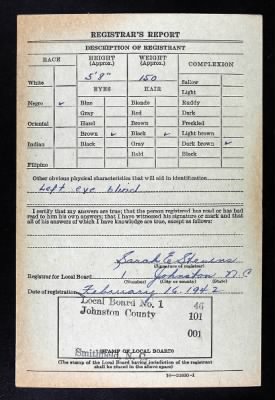 REGISTRAR'S REPORT
DESCRIPTION OF REGISTRANT
RACE HEIGHT (Approx.) WEIGHT (Approx.) COMPLEXION
5'8" 150
White EYES HAIR Sallow
Light
Negro ✓ Blue Blonde Ruddy
Gray Red Dark
Oriental Hazel Brown Freckled
Brown ✓ Black ✓ Light brown
Indian Black Gray Dark brown ✓
Bald Black
Filipino
Other obvious physical characteristics that will aid in identification
Left eye blind
I certify that my answers are true; that the person registered has read or has had
read to him his own answers; that I have witnessed his signature or mark and that
all of his answers of which I have knowledge are true, except as follows:
Sarah E Stevens
(Signature of registrar)
Registrar for Local Board 1 Johnston N.C
(Number) (City or county) (State)
Date of registration February 16, 1942
Local Board No. 1 46
Johnston County 101
001
Smithfield, N. C.
(STAMP OF LOCAL BOARD)
(The stamp of the Local Board having jurisdiction of the registrant
shall be placed in the above space)